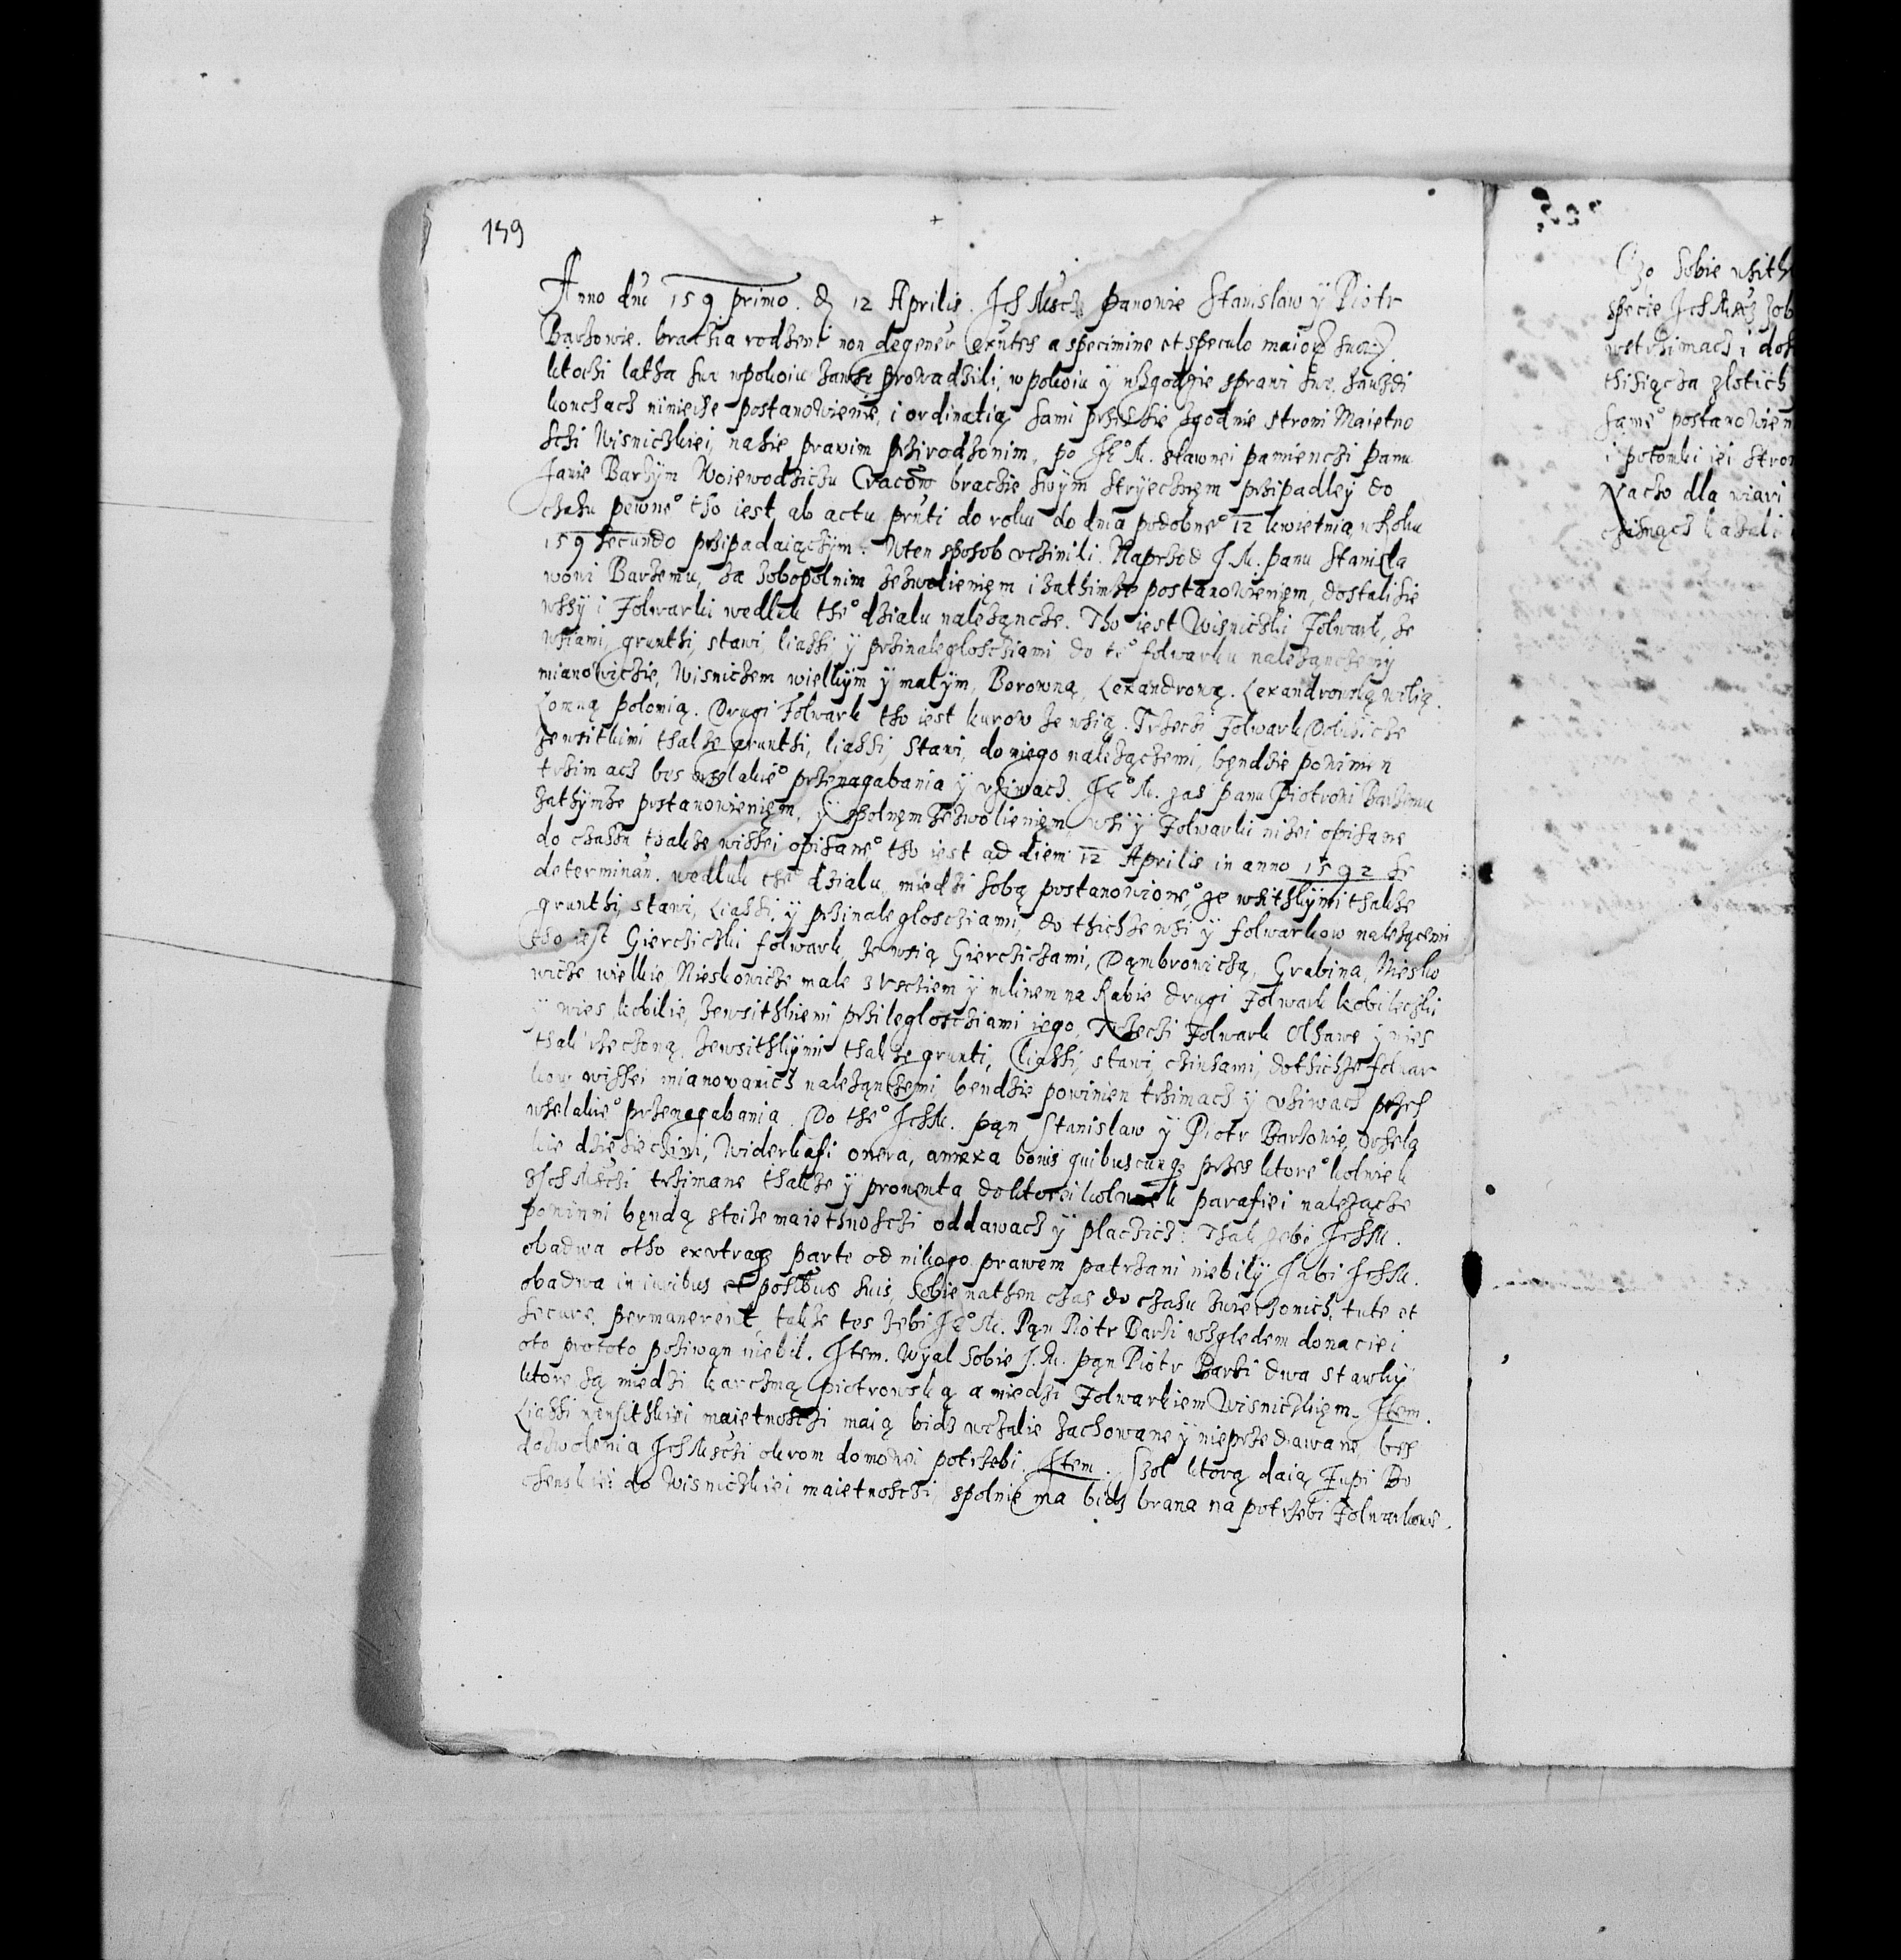 159
Anno dni 159 primo. d 12 Aprilis. Ich Mscz panowie Stanislaw ÿ Piotr
Barzowie. bracia rodzeni non degener a specimine et speculo maior suor
ktorzi latha swe wpokoiu zawse prowadzili, w pokoiu ÿ wzgodzie sprawi swe
konczacz niniesze postanowienie, i ordinatią sami przes sie zgodnie stroni Maietno
sczi Wisniczkiei, nasie prawim przirodzonim, po Je° M. sławnei pamienczi panu
Janie Barzÿm Woiewodzicu Cracow bracie swÿm strÿecznem przipadleÿ do
czasu pewne° tho iest ab actu pruti do roku do dnia podobne° 12 kwietnia w Roku
159 secundo przipadaiączÿm. Wten sposob vczinili. Naprzod J. M. panu Stanisla
wowi Barzemu, za zobopolnim zezwolieniem i zathimze postanowieniem, dostali sie
wsÿ i Folwarki wedluk the° dzialu nalezancze. Tho iest Wisniczki Folwark, ze
wsiami, grunthi, stawi, liassi, ÿ przinaleglosciami do te° folwarku nalezanczemÿ
mianowiczie, Wisniczem wielkÿm ÿ małÿm, Borowną, Lexandrową. Lexandrowską wilią.
Lomną polonią. Drugi Folwark tho iest kurow ze wsią. Trzeczi Folwark Poluzicze
zewsitkimi thakze grunthi, liassi, stawi, do niego nalezączemi, bendzie powinien
trzimacz bes wselakie° przenagabania ÿ vziwacz. Je° M. zas panu Piotrowi Barzemu
zathÿmze postanowieniem, ÿ spolnem zezwolieniem wsi ÿ Folwarki nizei opisane
do czassu thakze wissei opisane° tho iest ad diem 12 Aprilis in anno 1592 se
determinan. wedluk the° dzialu miedzi sobą postanowione°, ze wsithkÿmi thakze
grunthi, stawi, Liassi, ÿ przinalegloscziami, do thichze wsi ÿ folwarkow nalezącemi
tho iest Gierczickli folwark, ze wsią Gierczicami, Dąmbrowiczą, Grabina, Niesko
wicze wielkie, Nieskowicze male z Vsciem ÿ mlinem na Rabie drugi Folwark kobileckli
ÿ wies kobilie, zewsithkiemi przilegloscziami iego, Trzeczi Folwark Olhawe ÿ wies
thak rzeczoną, zewsithkÿmi thakze grunti, liassi, stawi, czinsami, dothichze folwar
kow wissei mianowanich nalezanczemi bendzie powinien trzimacz ÿ vziwacz przes
wselakie° przenagabania. Do the° Ich M. pan Stanislaw ÿ Piotr Barzowie, wsela
kie dziesieczini, widerkafi onera, annexa bonis quibuscunq przes ktore° kolwiek
z Ich Msczi trzimane thakze ÿ prouenta do ktorei kolwiek parafiei nalezącze
powinni będą steize maietnosczi oddawacz ÿ placzicz. Thak zebi Ich M.
obadwa otho ex vtraq parte od nikogo prawem patrzani niebilÿ Jabi Ich M.
obadwa in iuribus et posibus suis, sobie nathen czas do czasu zwierzonich, tute et
secure permanerent, takze tes zebi Je° M. Pan Piotr Barzi wzgledem donaciei
oto prototo poziwan niebil. Item. Wÿal sobie J. M. pan Piotr Barzi dwa stawkÿ
ktore są miedzi karczmą piotrowską a miedzi Folwarkiem Wisniczkiem. Item.
Liassi wewsithkiei maietnosczi maią bidz wczalie zachowane ÿ nieprzedawane bes
dozwolenia Ich Msczi okrom domowei potrzebi. Item. Szol ktorą daią Zupi Bo
chenskiei do Wisniczkiei maietnosczi, spolnie ma bidz brana na potrzebi Folwarkowe.
Czo sobie wsith
specie Ich Mcz zob
wetrzimacz, i dos
thisiącza zlotich
same° postanowien
i potomki iei stron
Nacko dla wiari